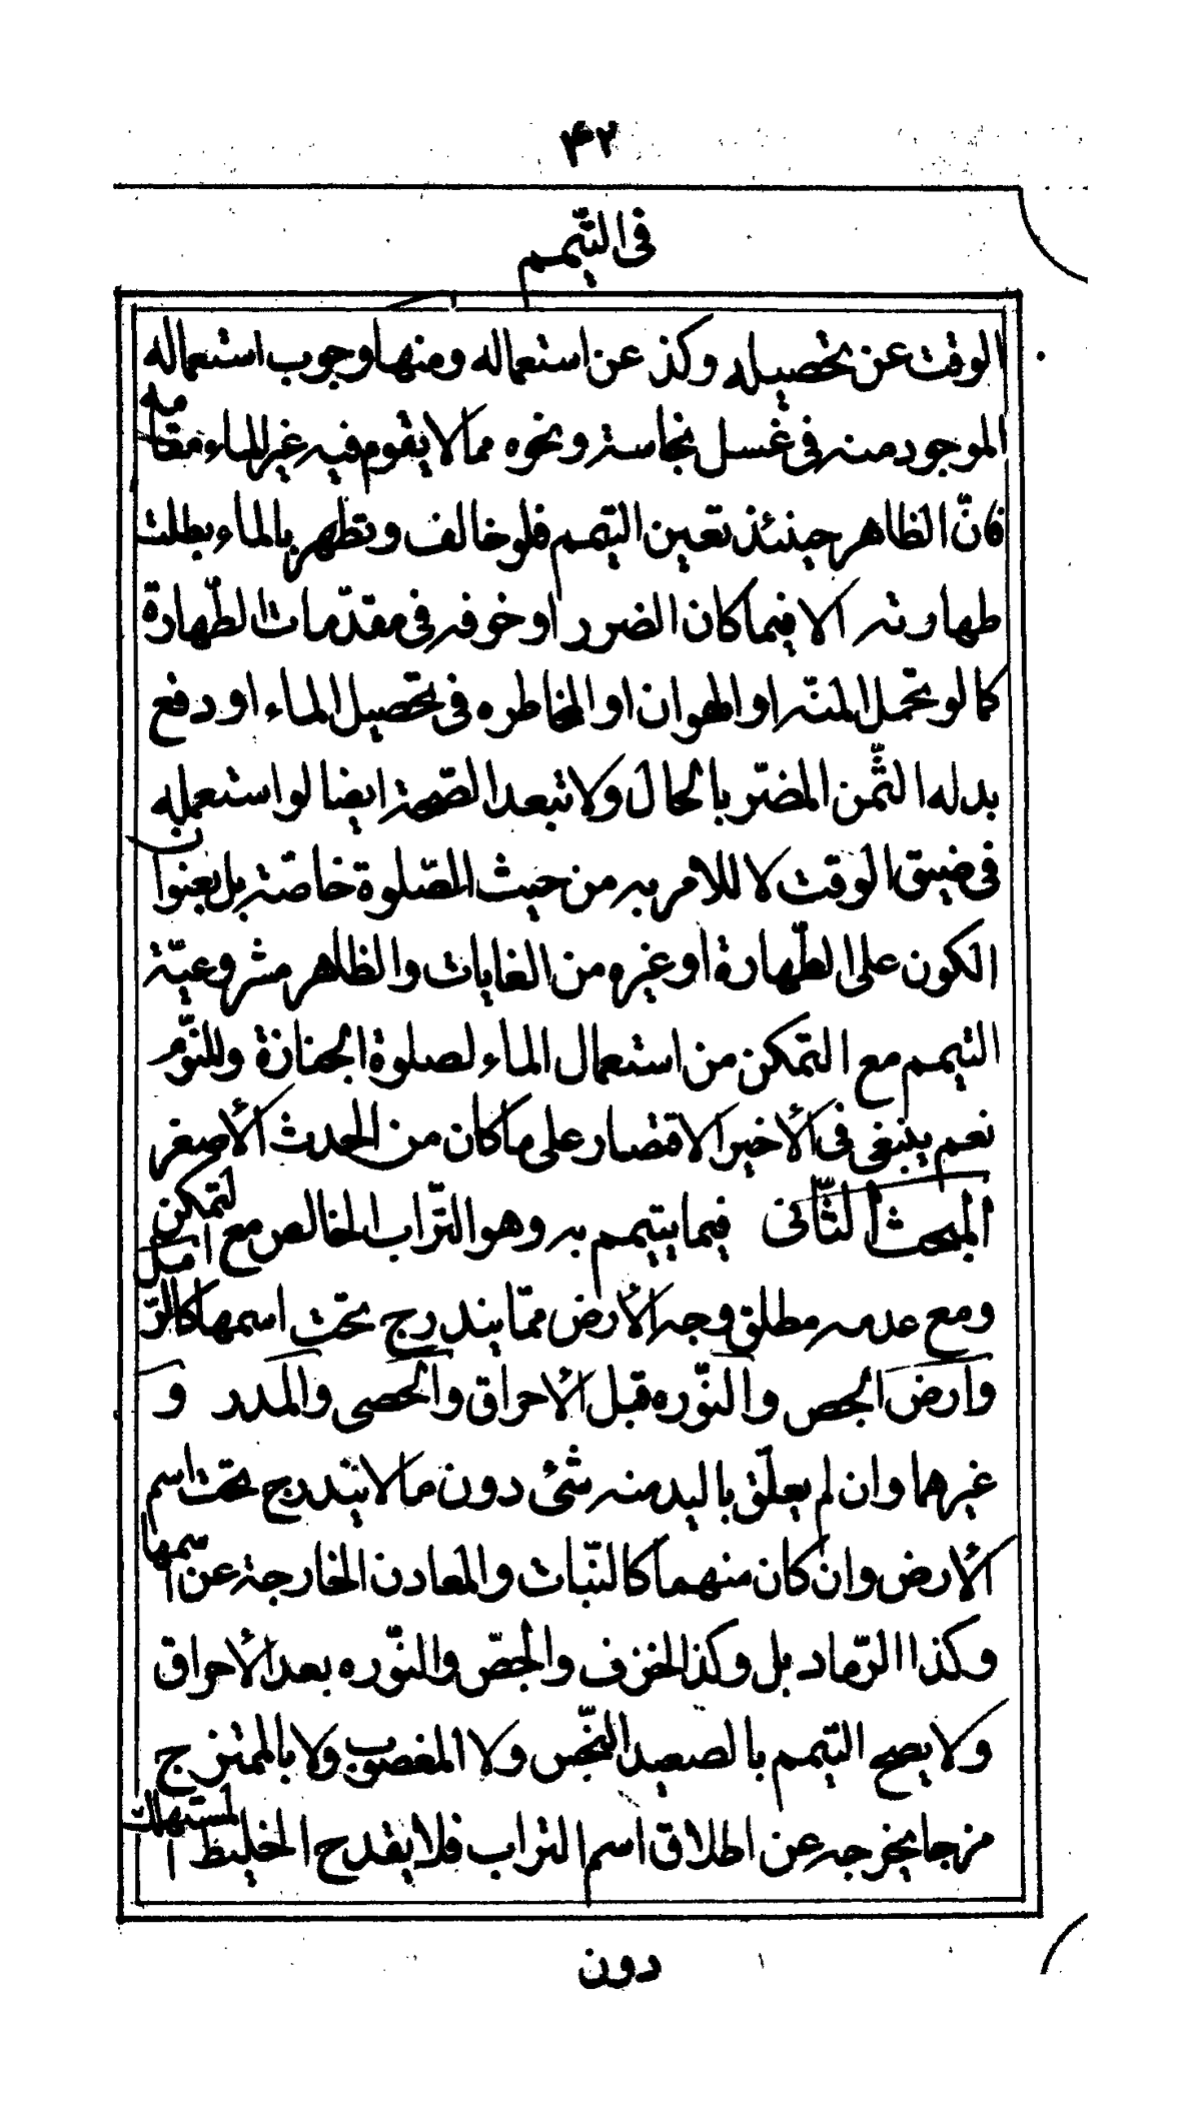 ۴۲
فی التیمم
الوقت عن تحصیله وکذ عن استعماله ومنها وجوب استعماله
الموجود منه فی غسل نجاسة ونحوه مما لا یقوم فیه غیر الماء مقامه
فانّ الظاهر حینئذ تعین التیمم فلو خالف وتطهر بالماء بطلت
طهارته الا فیما کان الضرر او خوفه فی مقدّمات الطّهارة
کما لو تحمل المنّه او الهوان او المخاطره فی تحصیل الماء او دفع
بدله الثّمن المضرّ بالحال ولا تبعد الصّحة ایضا لو استعمله
فی ضیق الوقت لا للامر به من حیث الصّلوة خاصّة بل بعنوان
الکون علی الطّهارة او غیره من الغایات والظاهر مشروعیّة
التیمم مع التمکن من استعمال الماء لصلوة الجنازة وللنّوم
نعم ینبغی فی الأخیر الاقتصار علی ما کان من الحدث الأصغر
المبحث الثّانی فیما یتیمم به وهو التّراب الخالص مع التمکن
ومع عدمه مطلق وجه الأرض ممّا یندرج تحت اسمها کالرّمل
وارض الجص والنّوره قبل الأحراق والحصی والمدد و
غیرهما وان لم یعلّق بالید منه شئ دون ما لا یندرج تحت اسم
الأرض وان کان منهما کالنّبات والمعادن الخارجة عن اسمها
وکذا الرّماد بل وکذا الخزف والجصّ والنّوره بعد الأحراق
ولا یصح التیمم بالصعید النّجس ولا المغصوب ولا بالممتزج
مزجا یخرجه عن اطلاق اسم التراب فلا یقدح الخلیط المستهلک
دون